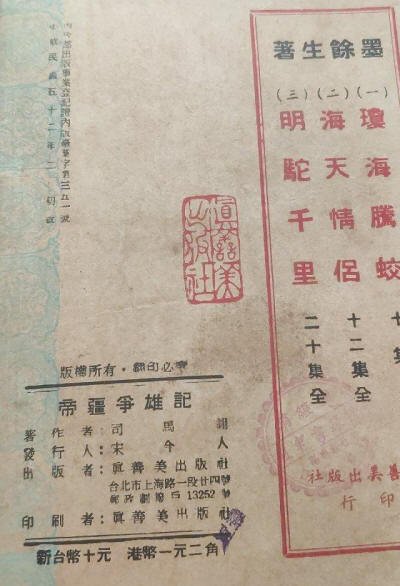 墨餘生著
(一)瓊海騰蛟
(二)海天情侶 十二集全
(三)明駝千里 二十集全
善美出版社
印行
內政部出版事業登記證內版臺業字第三五一號
中華民國五十二年二 初版
真善美出版社
版權所有・翻印必究
帝疆爭雄記
著作者:司馬翎
發行人:宋今人
出版者:眞善美出版社
台北市上海路一段廿四號
郵政劃撥戶13252
印刷者:眞善美出版社
新台幣十元 港幣一元二角